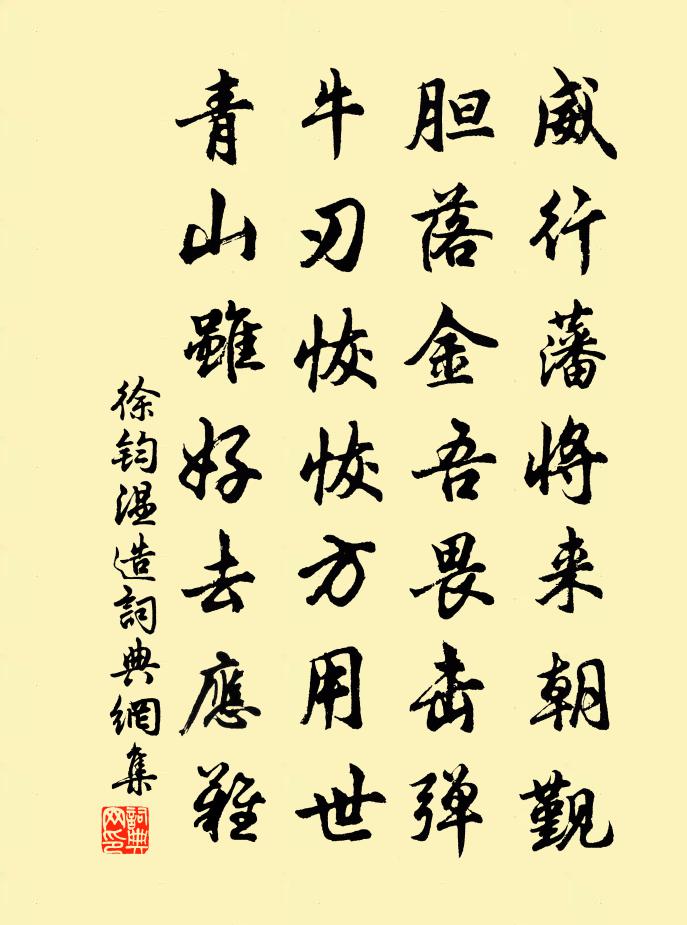 威行藩将来朝觐
胆落金吾畏击弹
牛刃恢恢方用世
青山雖好去應難
徐鈞温造詞典網集
詞典网印